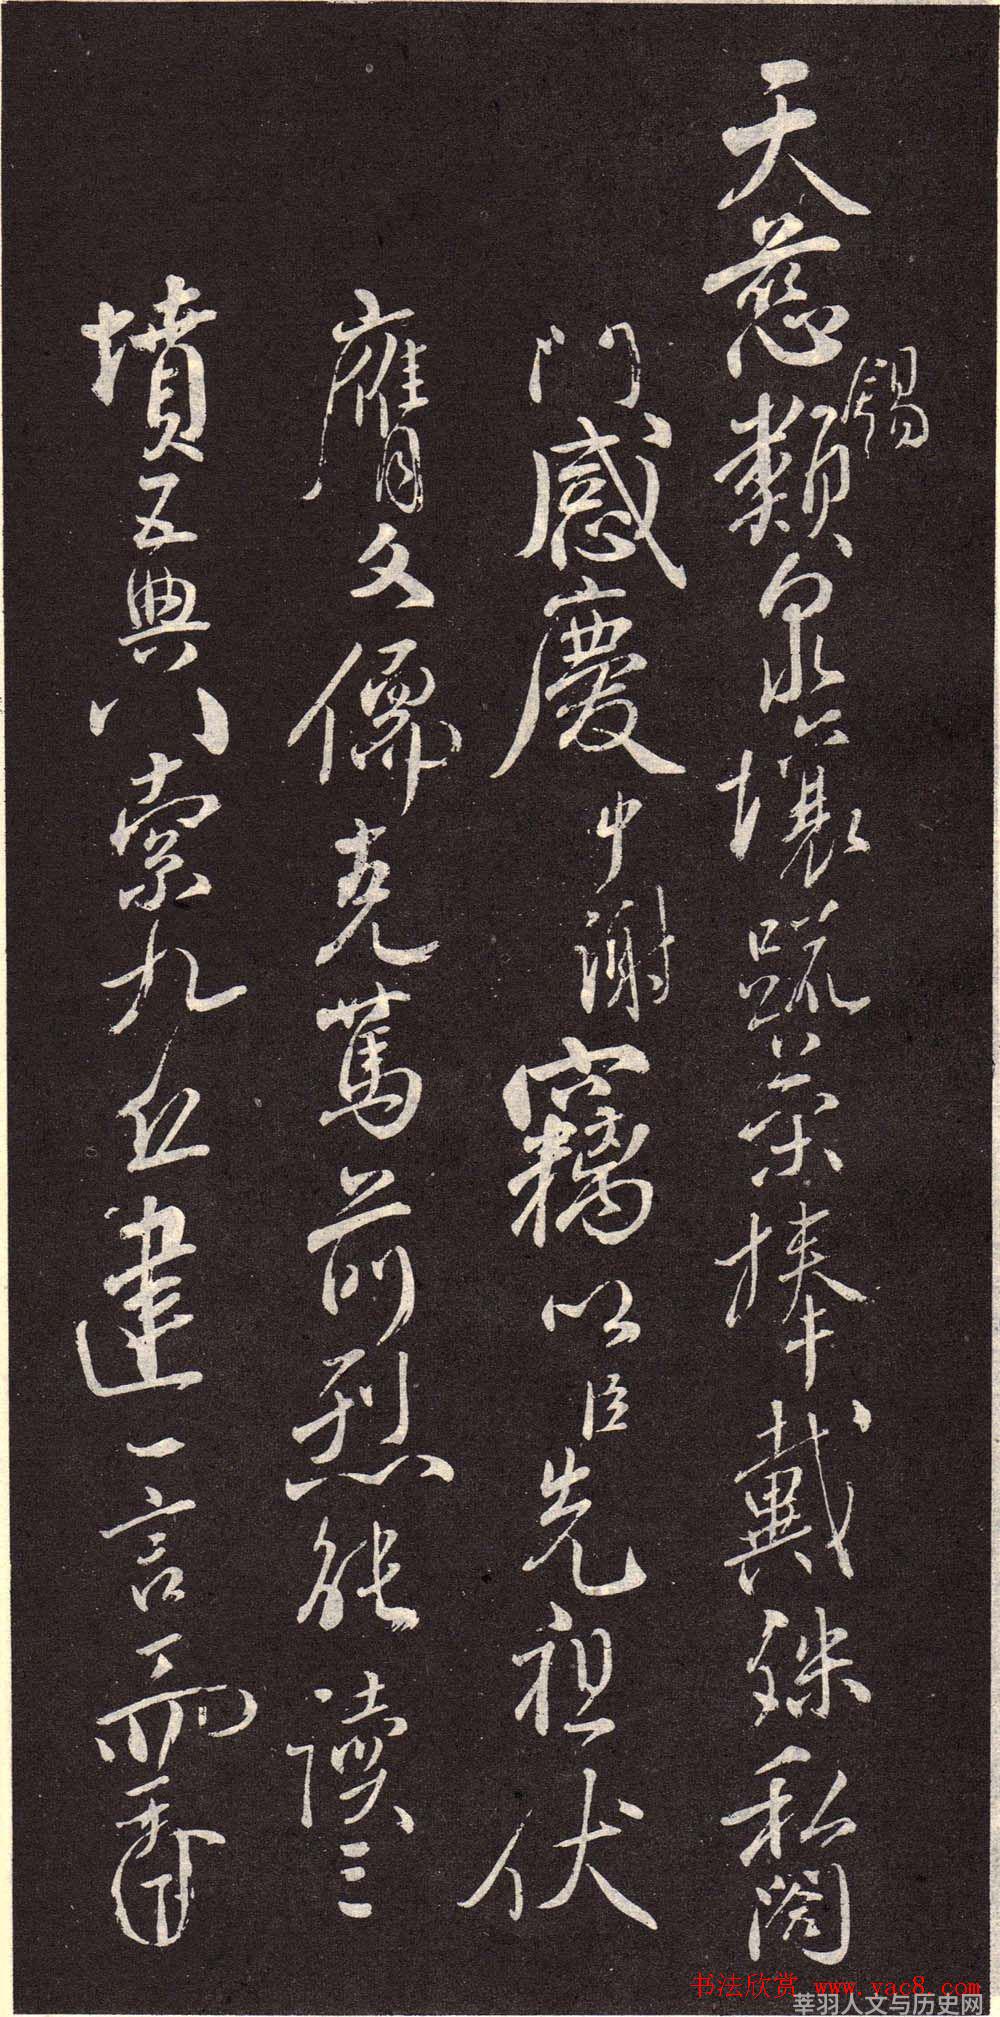 天慈錫類泉壤疏榮捧戴殊私闔
門感慶中謝竊以臣先祖伏
膺文儒克篤前烈能讀三
墳五典八索九丘建一言
书法欣赏 www.yac8.com
莘羽人文与历史网